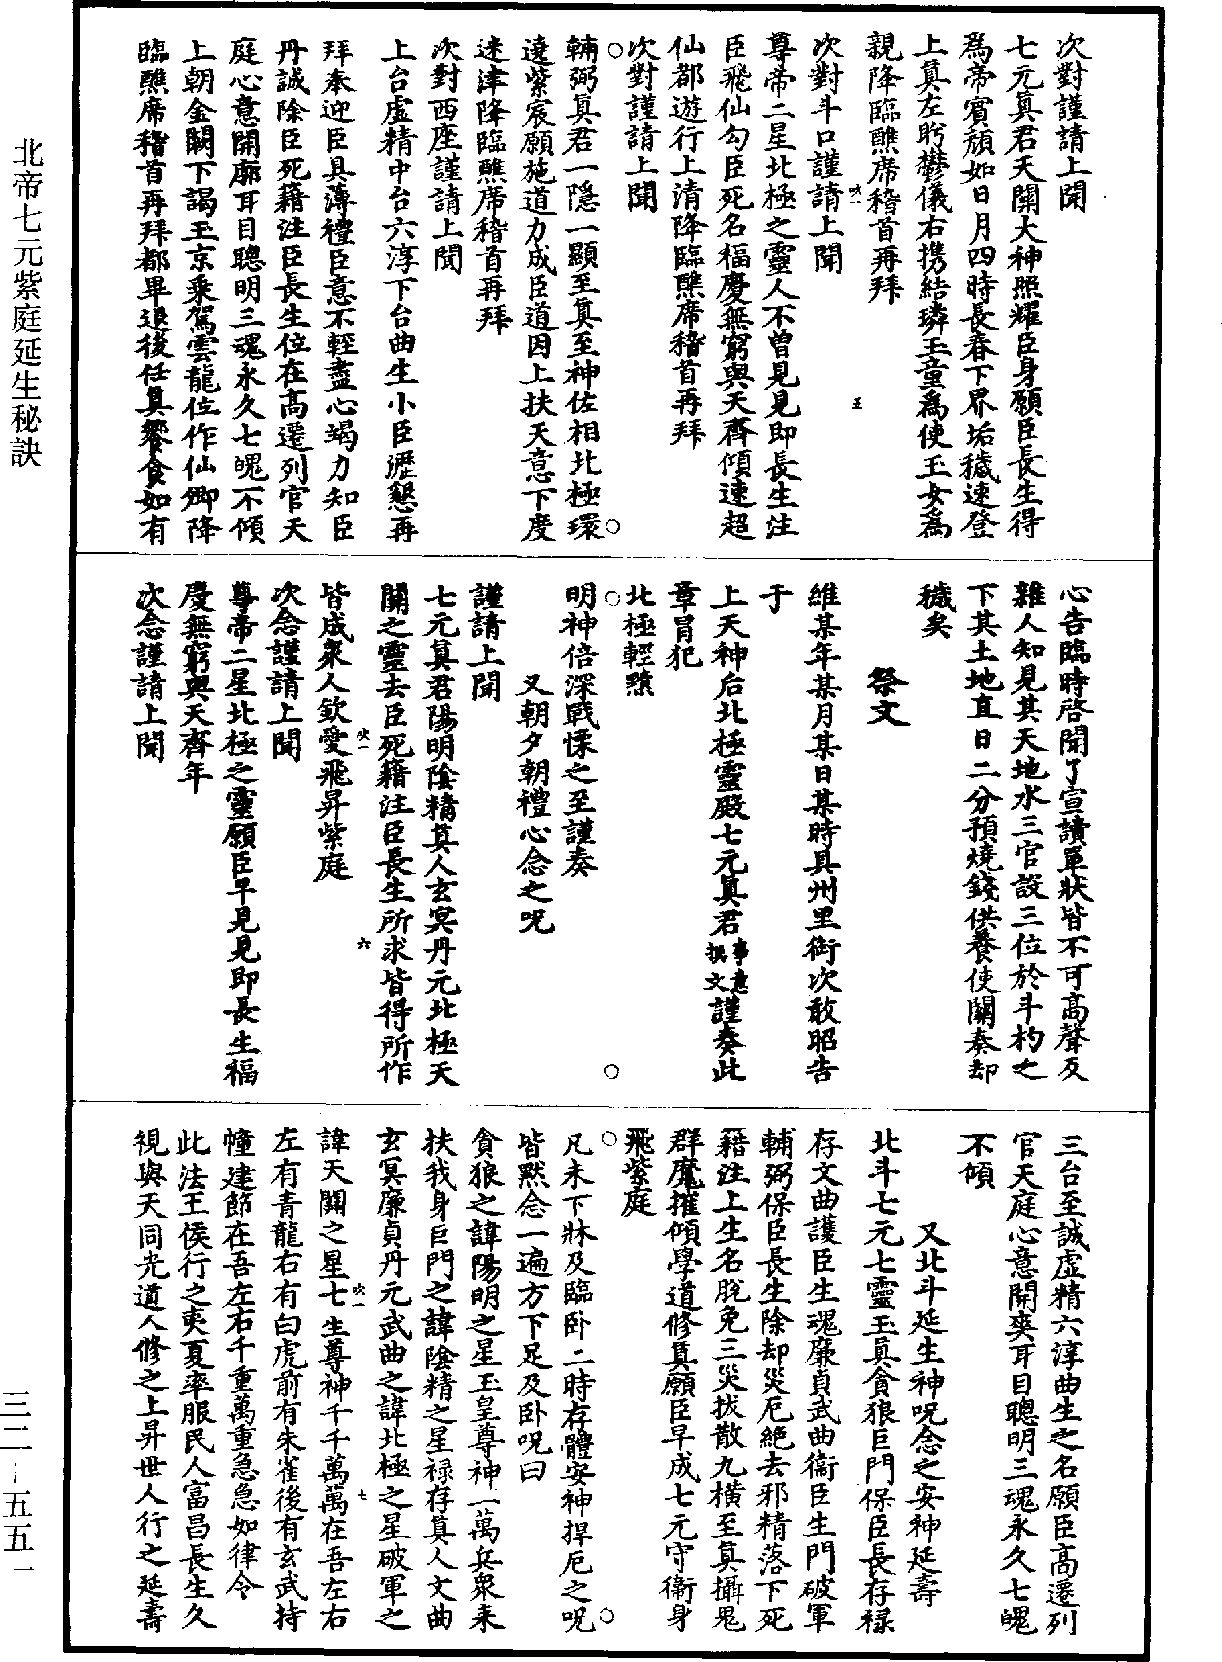 次對謹請上聞
七元真君天關大神照耀臣身願臣長生得
爲帝賓頹如日月四時長春下界垢穢速登
上真左盻欝儀右携結璘玉童爲使玉女爲
親降臨醮席稽首再拜
次對斗口謹請上聞
尊帝二星北極之靈人不曽見見即長生注
臣飛仙勾臣死名福慶無窮與天齊傾速超
仙都遊行上清降臨醮席稽首再拜
次對謹請上聞
輔弼真君一隱一顯至真至神佐相北極環
遶紫宸願施道力成臣道因上扶天意下度
迷津降臨醮席稽首再拜
次對西座謹請上聞
上台虛精中台六淳下台曲生小臣瀝懇再
拜奉迎臣具薄禮臣意不輕盡心竭力知臣
丹誠除臣死籍注臣長生位在高遷列官天
庭心意開廓耳目聰明三魂永久七魄不傾
上朝金闕下謁玉京乘駕雲龍位作仙卿降
臨醮席稽首再拜都畢退後任真饗食如有
心告臨時啓聞了宣讀單狀皆不可高聲及
雜人知見其天地水三官設三位於斗杓之
下其土地直日二分預燒錢供養使關奏却
穢矣
祭文
維某年某月某日某時具州里銜次敢昭告
于
上天神后北極靈殿七元真君事意撰文謹奏此
章冐犯
北極輕黷
明神倍深戰慄之至謹奏
又朝夕朝禮心念之呪
謹請上聞
七元真君陽明陰精真人玄冥丹元北極天
關之靈去臣死籍注臣長生所求皆得所作
皆成衆人欽愛飛昇紫庭
次念謹請上聞
尊帝二星北極之靈願臣早見見即長生福
慶無窮與天齊年
次念謹請上聞
三台至誠虛精六淳曲生之名願臣高遷列
官天庭心意開爽耳目聰明三魂永久七魄
不傾
又北斗延生神呪念之安神延壽
北斗七元七靈玉真貪狼巨門保臣長存禄
存文曲護臣生魂廉貞武曲衞臣生門破軍
輔弼保臣長生除却災厄絶去邪精落下死
籍注上生名脫免三災拔散九橫至真攝鬼
群魔摧傾學道修真願臣早成七元守衞身
飛紫庭
凡未下牀及臨卧二時存體安神捍厄之呪
皆默念一遍方下足及卧呪曰
貪狼之諱陽明之星玉皇尊神一萬兵衆来
扶我身巨門之諱陰精之星禄存真人文曲
玄冥廉貞丹元武曲之諱北極之星破軍之
諱天關之星七生尊神千千萬萬在吾左右
左有青龍右有白虎前有朱雀後有玄武持
幢建節在吾左右千重萬重急急如律令
此法王侯行之夷夏率服民人富昌長生久
視與天同光道人修之上昇世人行之延壽
北帝七元紫庭延生秘訣
三二－五五一